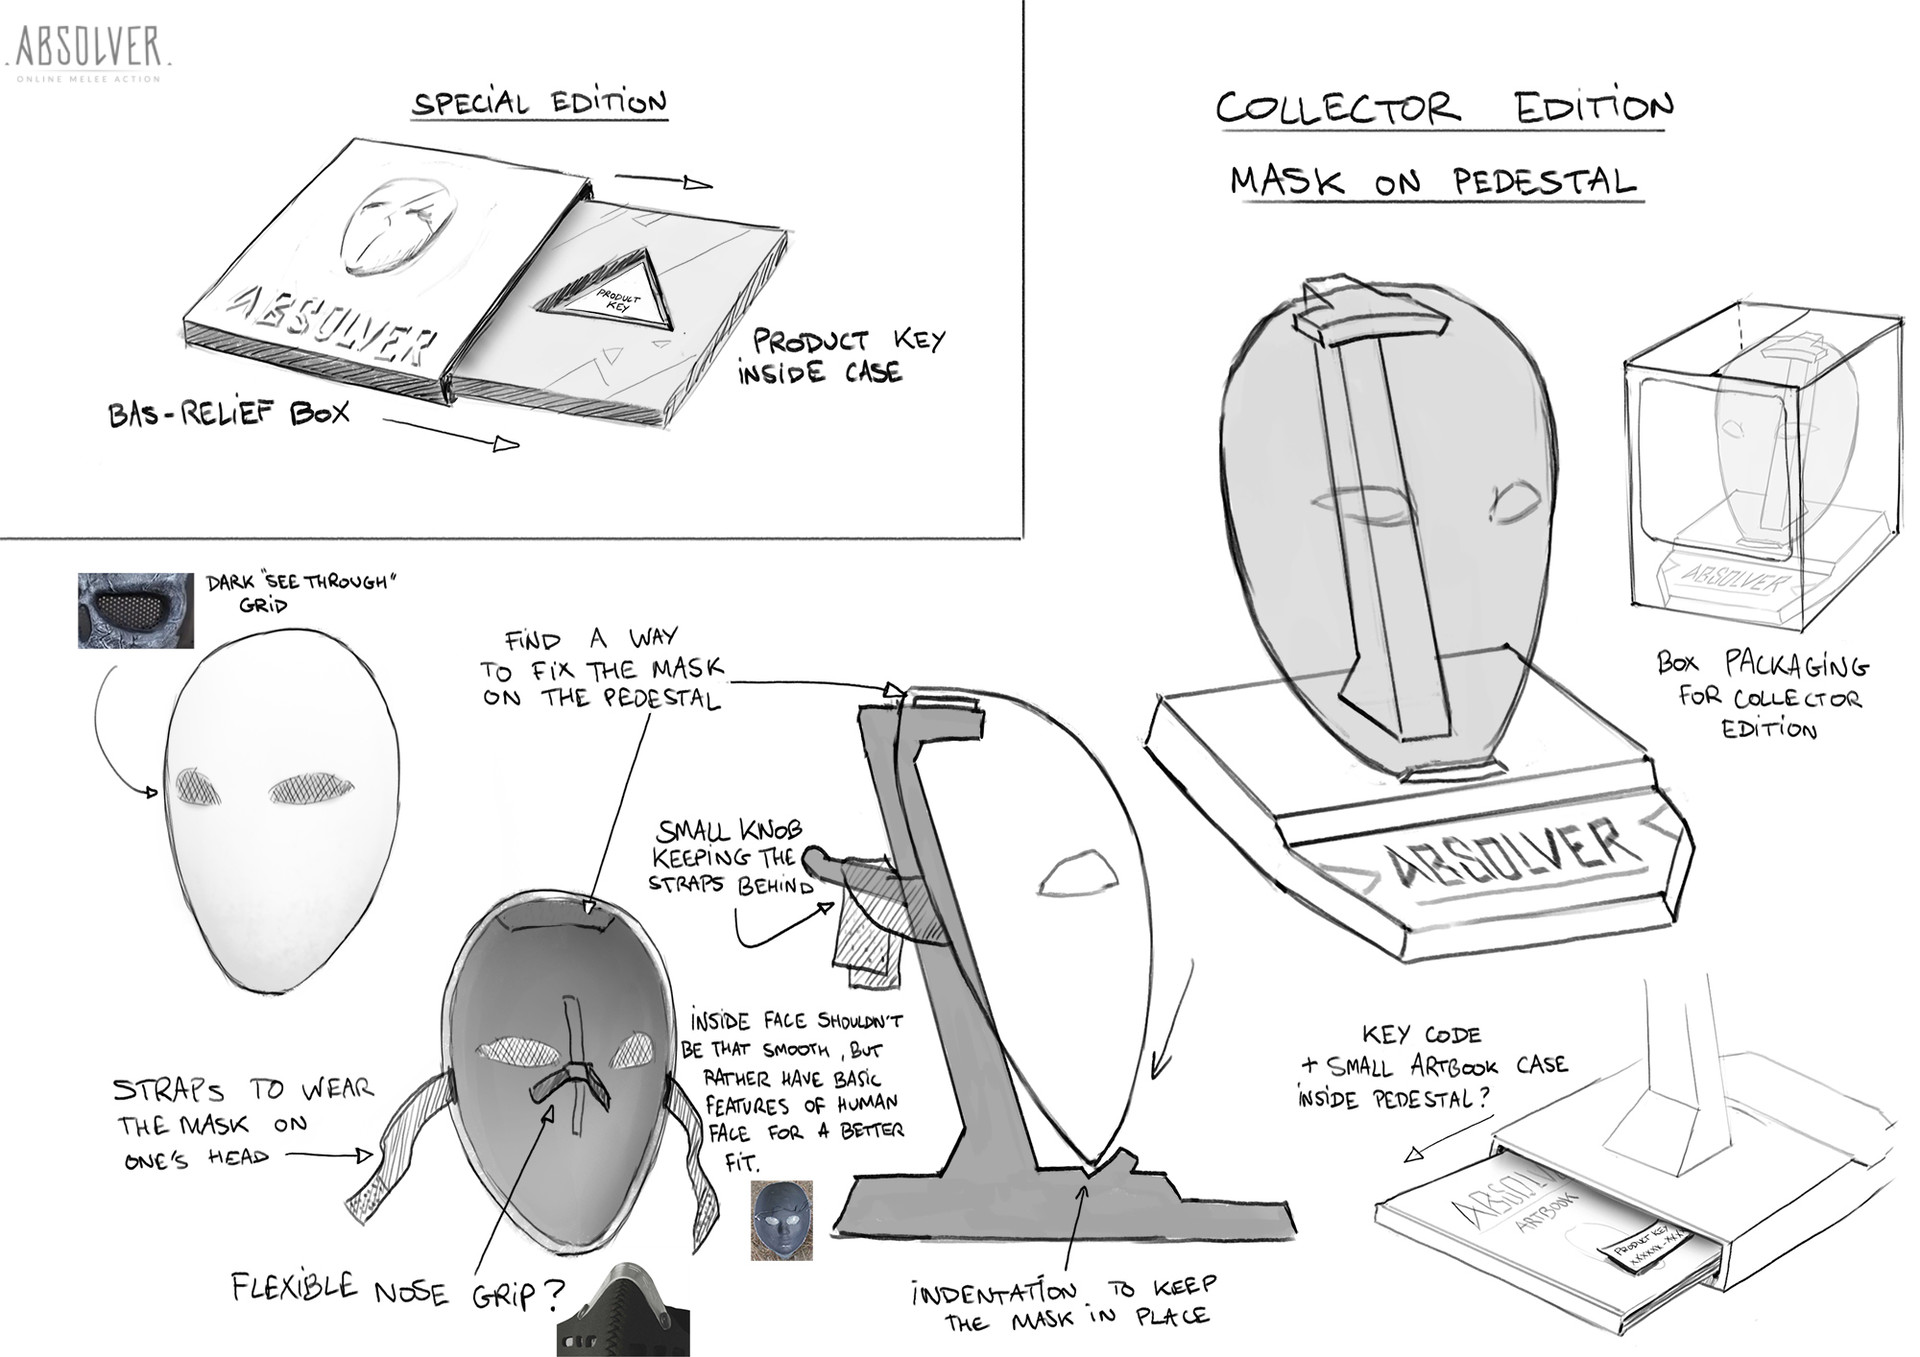 .ABSOLVER.
ONLINE MELEE ACTION
SPECIAL EDITION
ABSOLVER
PRODUCT
KEY
PRODUCT KEY
INSIDE CASE
BAS-RELIEF BOX
COLLECTOR EDITION
MASK ON PEDESTAL
ABSOLVER
ABSOLVER
BOX PACKAGING
FOR COLLECTOR
EDITION
DARK "SEE THROUGH"
GRID
FIND A WAY
TO FIX THE MASK
ON THE PEDESTAL
SMALL KNOB
KEEPING THE
STRAPS BEHIND
INSIDE FACE SHOULDN'T
BE THAT SMOOTH, BUT
RATHER HAVE BASIC
FEATURES OF HUMAN
FACE FOR A BETTER
FIT.
STRAPS TO WEAR
THE MASK ON
ONE'S HEAD
FLEXIBLE NOSE GRIP?
INDENTATION TO KEEP
THE MASK IN PLACE
KEY CODE
+ SMALL ARTBOOK CASE
INSIDE PEDESTAL?
ABSOLVE
ARTBOOK
PRODUCT KEY